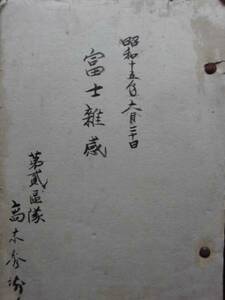 昭和十五年六月二十日
富士雜感
第貳區隊
高木